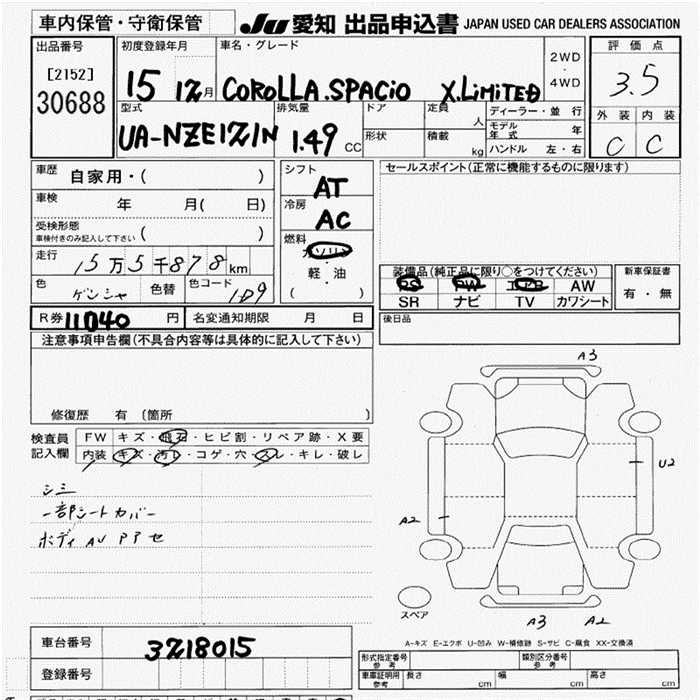 車内保管・守衛保管 JU 愛知 出品申込書 JAPAN USED CAR DEALERS ASSOCIATION
出品番号 初度登録年月 車名・グレード 2WD・4WD 評価点
[2152] 15 12月 COROLLA.SPACIO X.LIMITED 3.5
30688
型式 排気量 ドア 定員 人 ディーラー・並行 外装 内装
UA-NZE121N 1.49 CC 形状 積載 kg モデル年式 年 C C
ハンドル 左・右
車歴 自家用・( ) シフト AT セールスポイント(正常に機能するものに限ります)
車検 年 月( 日) 冷房 AC
受検形態 ( )
車検付きのみ記入して下さい
燃料 ガソリン
走行 15万5千878km 軽・油
( )
装備品(純正品に限り○をつけてください) 新車保証書
PS PW エアB AW 有・無
SR ナビ TV カワシート
色 ゲンシャ 色替 色コード 1D9
R券 11040 円 名変通知期限 月 日 後日品
注意事項申告欄(不具合内容等は具体的に記入して下さい)
修復歴 有 (箇所 )
検査員記入欄 FW キズ・飛石・ヒビ割・リペア跡・X要
内装 キズ・汚レ・コゲ・穴・スレ・キレ・破レ
シミ
一部シートカバー
ボディ AU PP セ
A3
U2
A2
スペア
A3 A2
A-キズ E-エクボ U-凹み W-補修跡 S-サビ C-腐食 XX-交換済
車台番号 3218015
登録番号
形式指定番号 参考 類別区分番号 参考
車庫証明用 参考 長さ cm 幅 cm 高さ cm